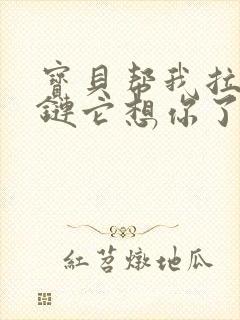 寳貝帮我拉
鏈它想你了
紅苕燉地瓜